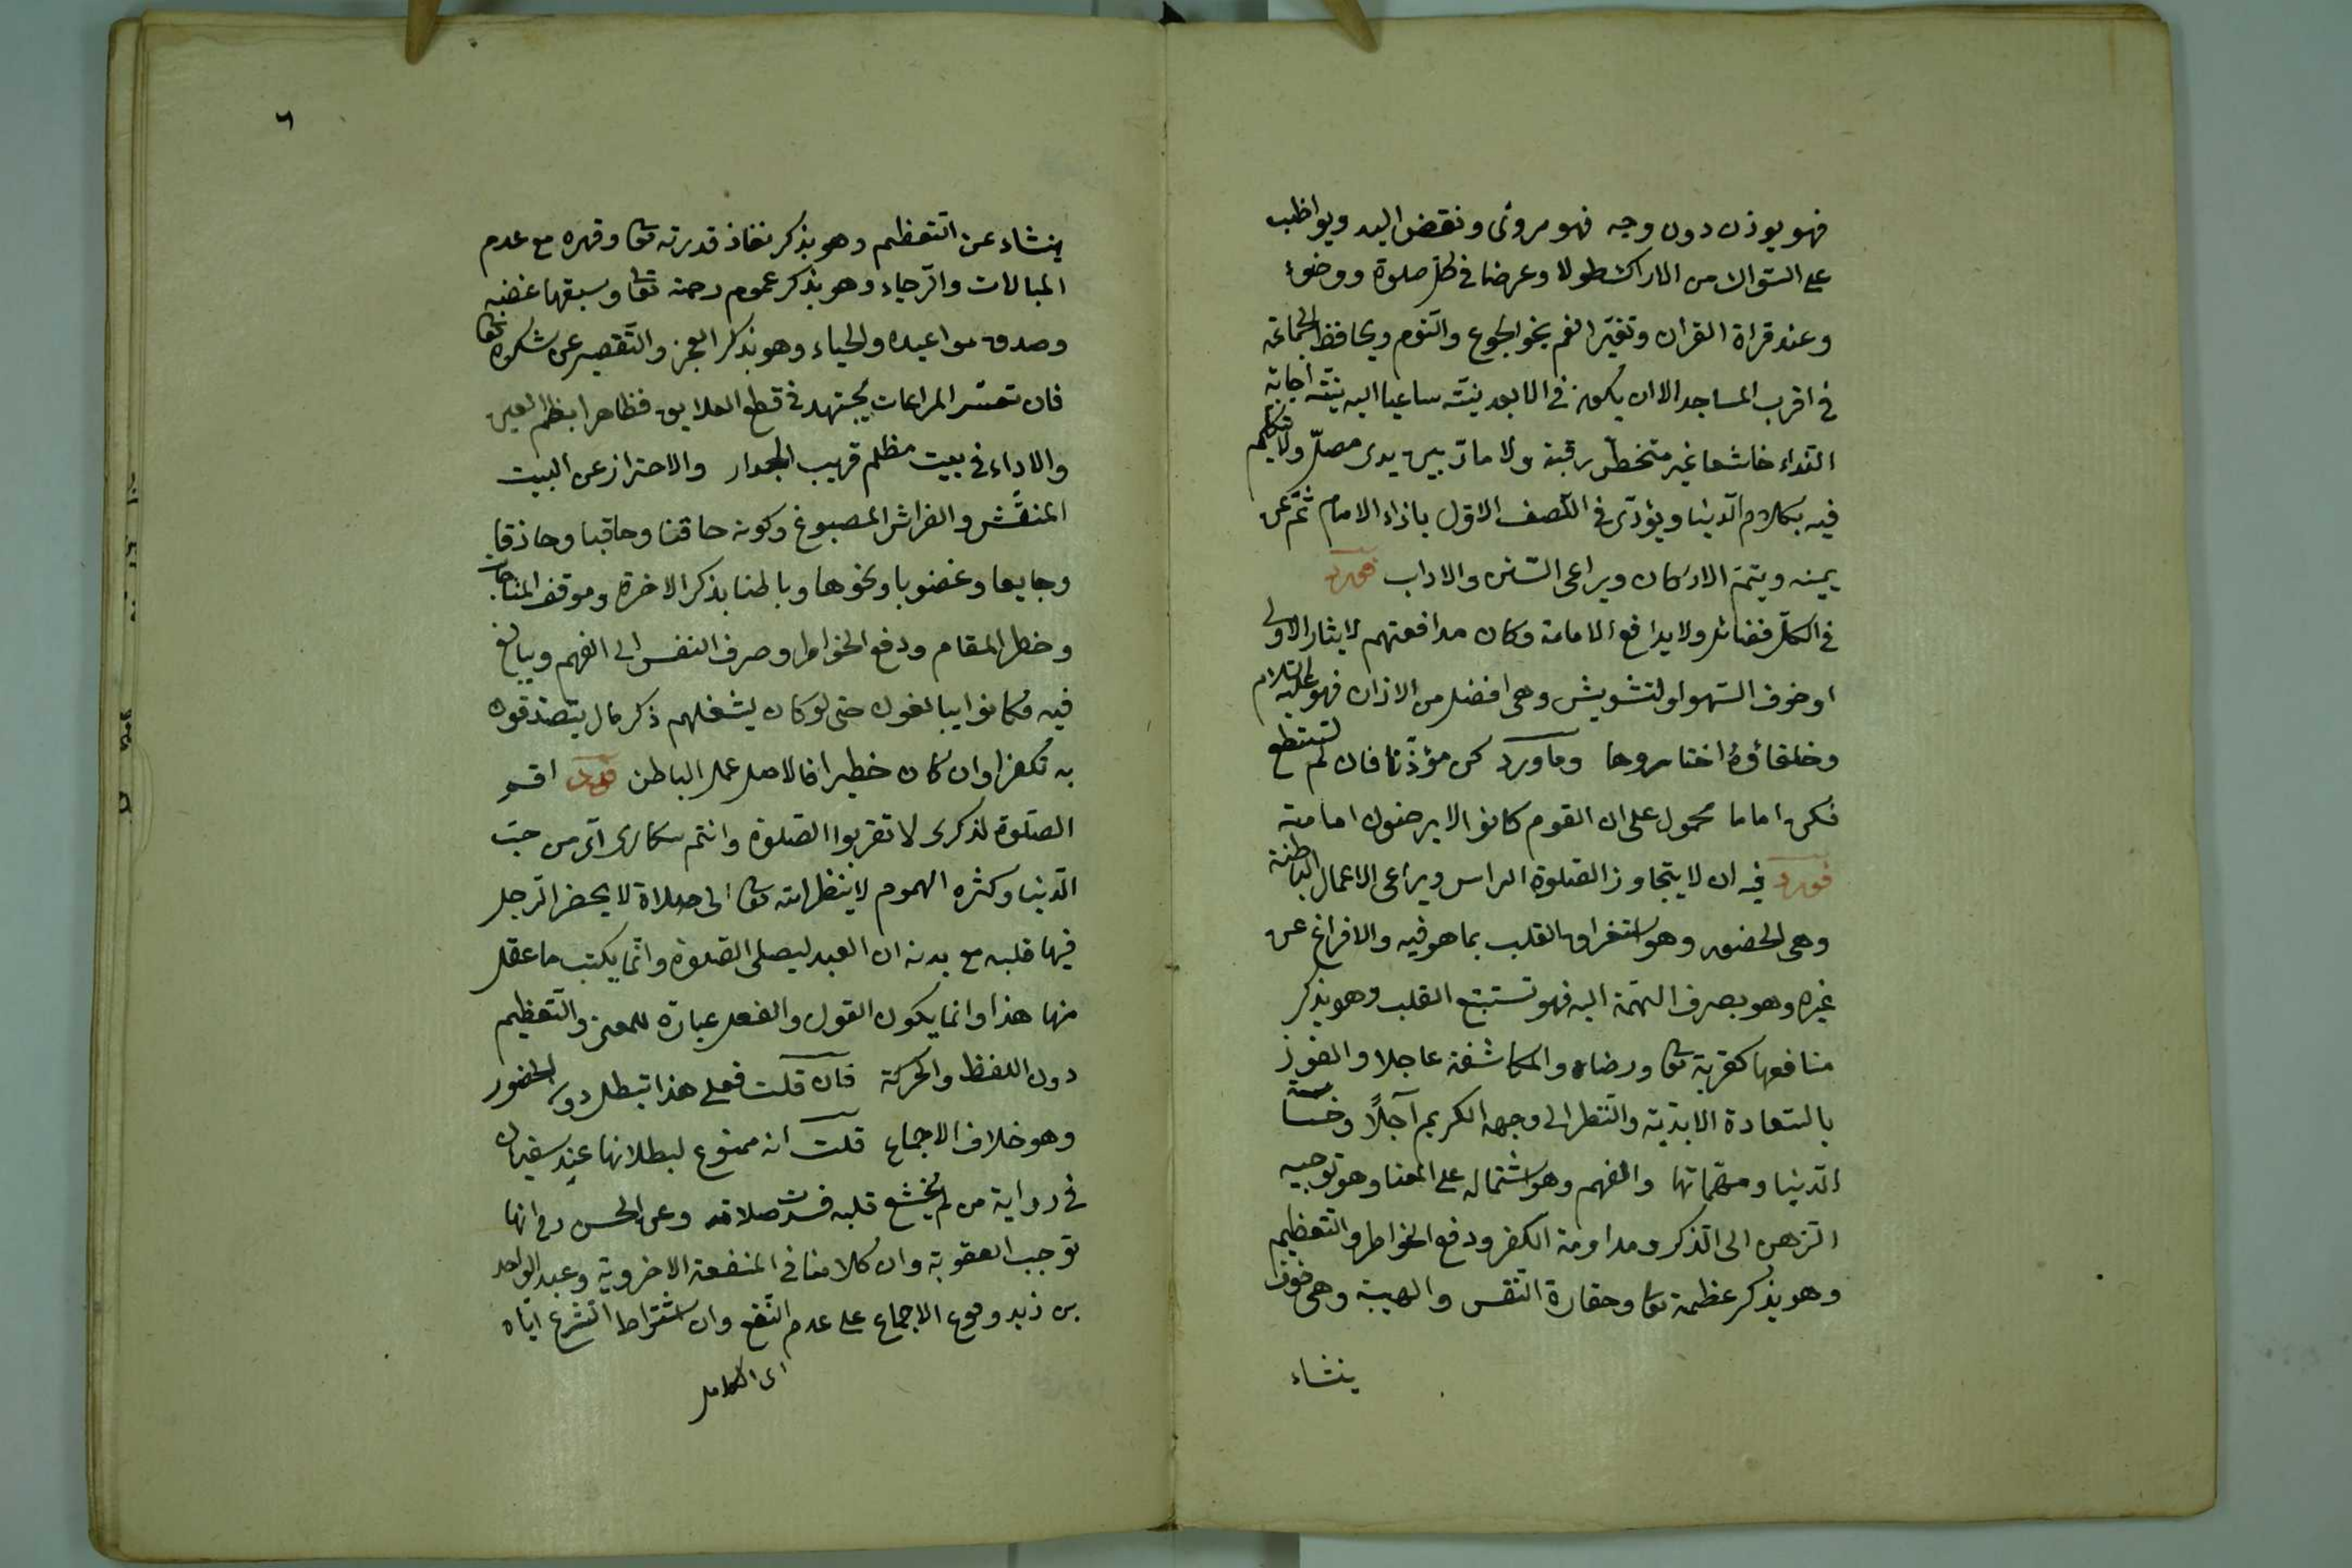 فهو يوذن دون وجه فهو مروى ونقض اليد ويواظب
على السواك من الاراك طولا وعرضا فى كل صلوة ووضوء
وعند قراة القران وتغير الفم بنحو الجوع والنوم ويحافظ الجماعة
فى اقرب المساجد الا ان يكون فى الابعد نية ساعيا اليه بنية اجابة
النداء خاشعا غير متخط رقبة ولا مار بين يدى مصل ولا يتكلم
فيه بكلام الدنيا ويؤدى فى الصف الاول بازاء الامام ثم عن
يمينه ويتم الاركان ويراعى السنن والاداب فورد
فى الكل فضائل ولا يدافع الامامة وكان مدافعتهم لايثار الاولى
او خوف السهو او لتشويش وهى افضل من الاذان فهو عليه السلام
وخلفاؤه اختاروها وما ورد كن مؤذنا فان لم تستطع
فكن اماما محمول على ان القوم كانوا لا يرضون امامته
فورد فيه ان لا يتجاوز الصلوة الراس ويراعى الاعمال الباطنة
وهى الحضور وهو استغراق القلب بما هو فيه والافراغ عن
غيره وهو بصرف الهمة اليه فهو تستبتع القلب وهو بذكر
منافعها كقربة تعا ورضاه والمكاشفة عاجلا والفوز
بالسعادة الابدية والنظر الى وجهه الكريم آجلا وخسة
الدنيا ومهماتها والفهم وهو اشتماله على المعنا وهو توجيه
الزهن الى الذكر ومداومة الفكر ودفع الخواطر والتعظيم
وهو بذكر عظمة تعا وحقارة النفس والهيبة وهى خوف
ينشاء
٦
ينشاء عن التعظيم وهو بذكر نفاذ قدرته تعا وقهره مع عدم
المبالات والرجاء وهو بذكر عموم رحمة تعا وسبقها غضبه
وصدق مواعيده والحياء وهو بذكر العجز والتقصير عن شكره تعا
فان تعسر المراعات يجتهد فى قطع العلايق فظاهرا بغض العين
والاداء فى بيت مظلم قريب الجدار والاحتراز عن البيت
المنقش والفراش المصبوغ وكونه حاقنا وحاقبا وحاذقا
وجايعا وغضوبا ونحوها وباطنا بذكر الاخرة وموقف المناجات
وخطر المقام ودفع الخواطر وصرف النفس الى الفهم ويبالغ
فيه فكانوا يبالغون حتى لو كان يشغلهم ذكر مال يتصدقون
به تكفيرا وان كان خطيرا فالاصل عمل الباطن فورد اقم
الصلوة لذكرى لا تقربوا الصلوة وانتم سكارى اى من حب
الدنيا وكثره الهموم لا ينظر الله تعا الى صلاة لا يحضر الرجل
فيها قلبه مع بدنه ان العبد ليصلى الصلوة وانما يكتب ما عقل
منها هذا وانما يكون القول والفعل عبادة للمعنى والتعظيم
دون اللفظ والحركة فان قلت فعلى هذا تبطل دون الحضور
وهو خلاف الاجماع قلت انه ممنوع لبطلانها عند سفيان
فى رواية من لم يخشع قلبه فسدت صلاته وعن الحسن رح انها
توجب العقوبة وان كلامنا فى المنفعة الاخروية وعبد الواحد
بن زيد وقوع الاجماع على عدم النفع وان اشتراط الشرع اياه
اى الكامل